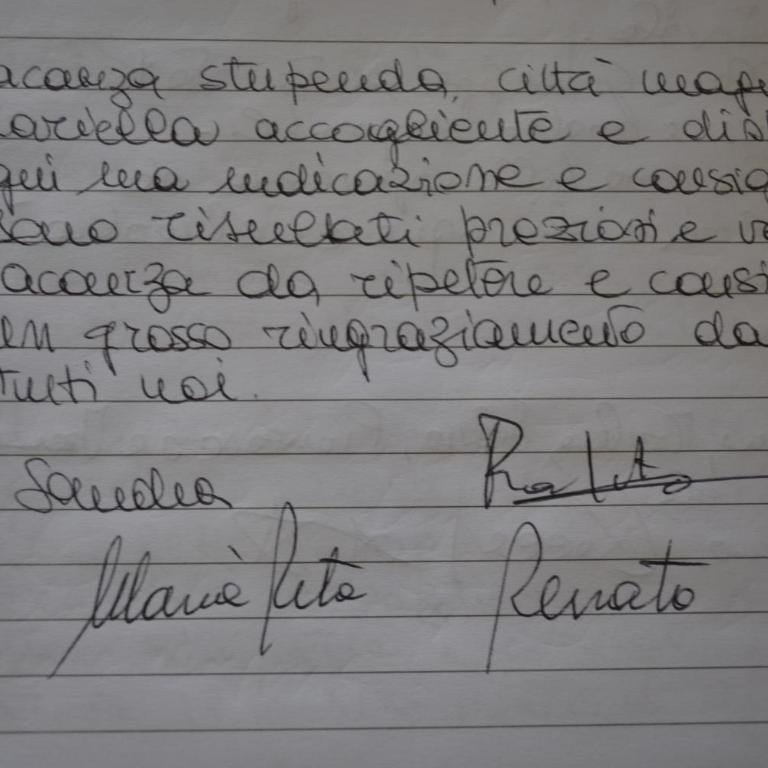 acanza stupenda, città mag
ariella accogliente e dis
qui sua indicazione e consig
sono risultati preziosi e v
acanza da ripetere e consi
un grosso ringraziamento da
tutti noi.
Sandra
Maria Rita Renato